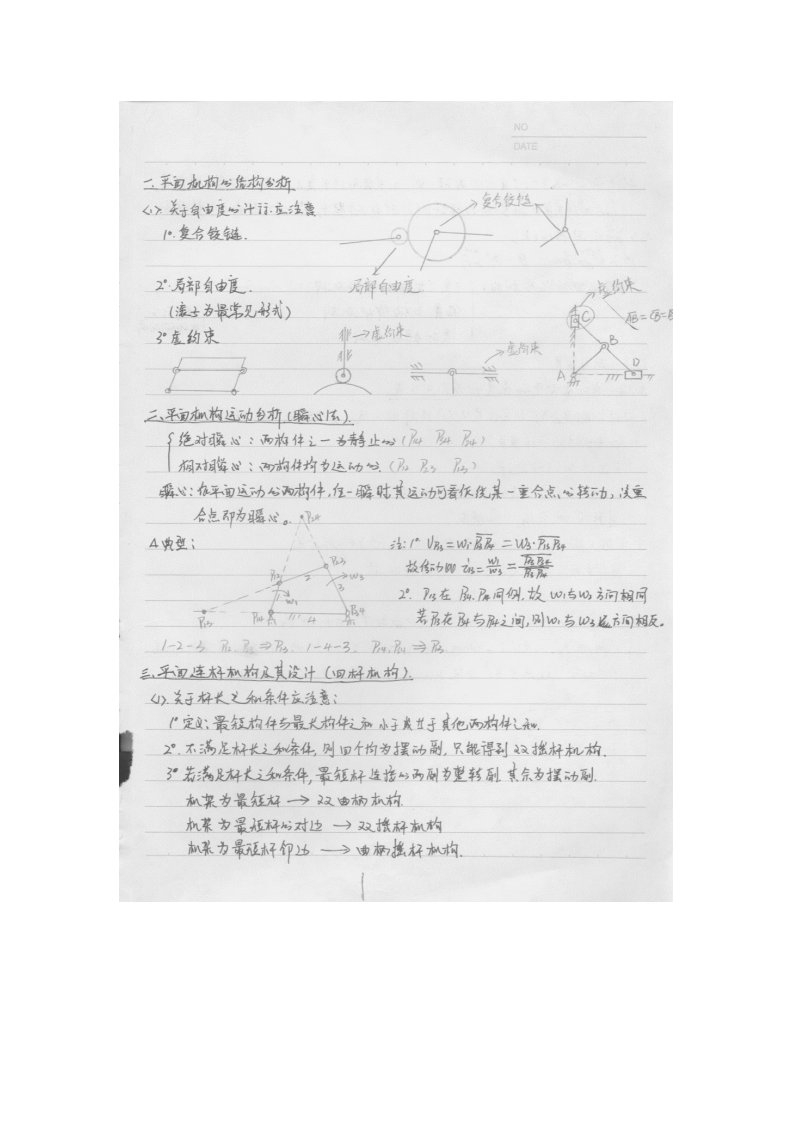 NO
DATE
一.平面机构的结构分析
<1>.关于自由度的计算.应注意
1°.复合铰链.
复合铰链
2°.局部自由度.
局部自由度
(滚子为最常见形式)
3°虚约束
虚约束
虚约束
虚约束
A B C D
二.平面机构运动分析(瞬心法).
绝对瞬心:两构件之一为静止的(P14 P24 P34)
相对瞬心:两构件均为运动的.(P12 P23 P13)
瞬心:在平面运动的两构件,任一瞬时其运动可看作绕某一重合点的转动,该重
合点即为瞬心。
P24
典型:
P12 2 P23 3 W3 W1 P13 P14 4 P34
注:1° VP13=W1·P13P14=W3·P13P34
故传动比 i13=W1/W3=P13P34/P13P14
2°. P13在P34.P14同侧,故W1与W3方向相同
若P13在P34与P14之间,则W1与W3方向相反。
1-2-3 P12.P23⇒P13 1-4-3. P14,P34⇒P13
三.平面连杆机构及其设计(四杆机构).
<1>.关于杆长之和条件应注意:
1°定义:最短构件与最长构件之和小于或等于其他两构件之和.
2°.不满足杆长之和条件,则四个均为摆动副,只能得到双摇杆机构.
3°若满足杆长之和条件,最短杆连接的两副为整转副.其余为摆动副.
机架为最短杆→双曲柄机构.
机架为最短杆的对边→双摇杆机构
机架为最短杆邻边→曲柄摇杆机构.
1